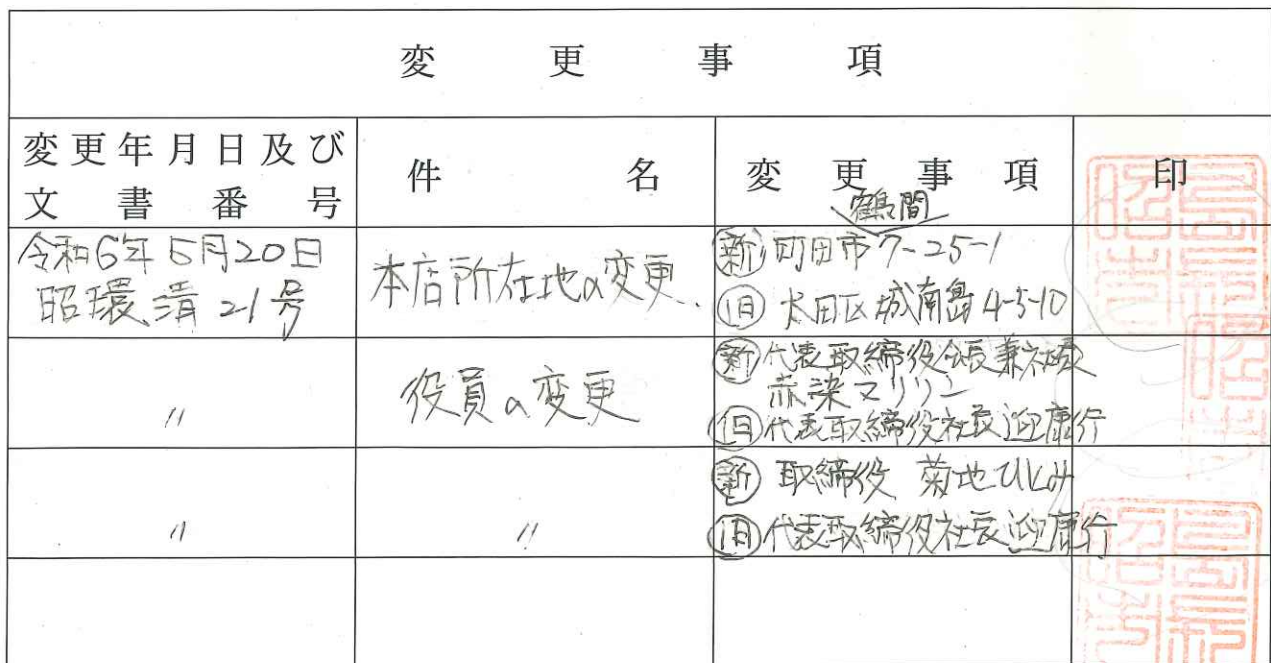 変更事項
変更年月日及び
文書番号
件名
変更事項
印
令和6年5月20日
昭環清21号
本店所在地の変更
鶴間
新 町田市7-25-1
旧 大田区城南島4-5-10
〃
役員の変更
新 代表取締役会長兼社長
赤染マリリン
旧 代表取締役社長迎康行
〃
〃
新 取締役 菊地ひとみ
旧 代表取締役社長迎康行